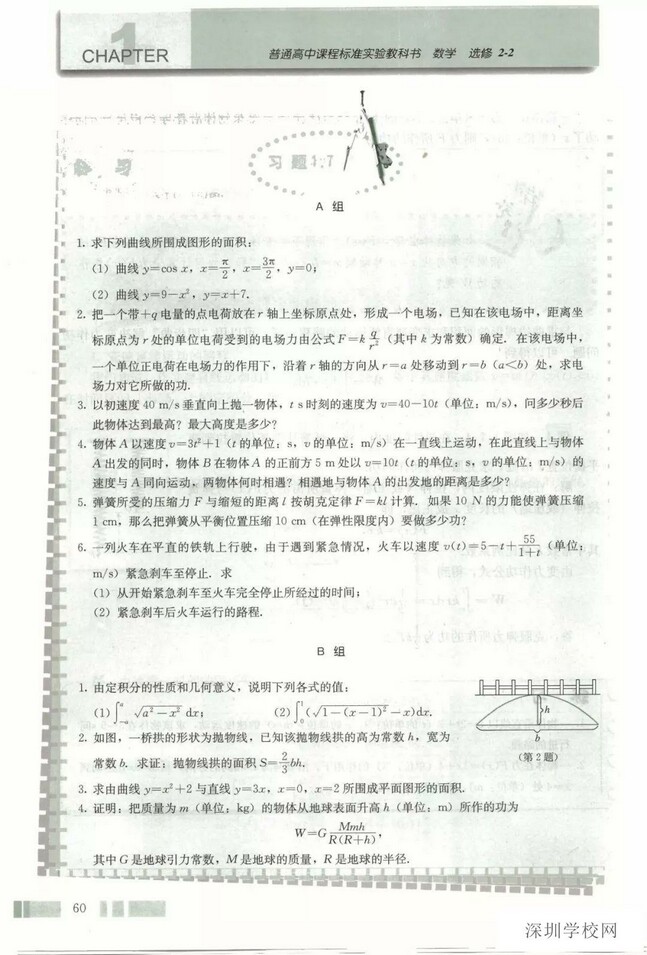 1
CHAPTER
普通高中课程标准实验教科书 数学 选修 2-2
习题1.7
A 组
1. 求下列曲线所围成图形的面积：
（1）曲线 y=cos x，x=π/2，x=3π/2，y=0；
（2）曲线 y=9-x²，y=x+7.
2. 把一个带+q 电量的点电荷放在 r 轴上坐标原点处，形成一个电场，已知在该电场中，距离坐
标原点为 r 处的单位电荷受到的电场力由公式 F=k q/r²（其中 k 为常数）确定．在该电场中，
一个单位正电荷在电场力的作用下，沿着 r 轴的方向从 r=a 处移动到 r=b（a<b）处，求电
场力对它所做的功.
3. 以初速度 40 m/s 垂直向上抛一物体，t s 时刻的速度为 v=40-10t（单位：m/s），问多少秒后
此物体达到最高？最大高度是多少？
4. 物体 A 以速度 v=3t²+1（t 的单位：s，v 的单位：m/s）在一直线上运动，在此直线上与物体
A 出发的同时，物体 B 在物体 A 的正前方 5 m 处以 v=10t（t 的单位：s，v 的单位：m/s）的
速度与 A 同向运动，两物体何时相遇？相遇地与物体 A 的出发地的距离是多少？
5. 弹簧所受的压缩力 F 与缩短的距离 l 按胡克定律 F=kl 计算．如果 10 N 的力能使弹簧压缩
1 cm，那么把弹簧从平衡位置压缩 10 cm（在弹性限度内）要做多少功？
6. 一列火车在平直的铁轨上行驶，由于遇到紧急情况，火车以速度 v(t)=5-t+55/(1+t)（单位：
m/s）紧急刹车至停止．求
（1）从开始紧急刹车至火车完全停止所经过的时间；
（2）紧急刹车后火车运行的路程.
B 组
1. 由定积分的性质和几何意义，说明下列各式的值：
（1）∫_{-a}^{a} √(a²-x²) dx； （2）∫_0^1 (√(1-(x-1)²)-x)dx.
2. 如图，一桥拱的形状为抛物线，已知该抛物线拱的高为常数 h，宽为
常数 b．求证：抛物线拱的面积 S=2/3 bh.
h
b
（第 2 题）
3. 求由曲线 y=x²+2 与直线 y=3x，x=0，x=2 所围成平面图形的面积.
4. 证明：把质量为 m（单位：kg）的物体从地球表面升高 h（单位：m）所作的功为
W=G Mmh/(R(R+h))，
其中 G 是地球引力常数，M 是地球的质量，R 是地球的半径.
60
深圳学校网